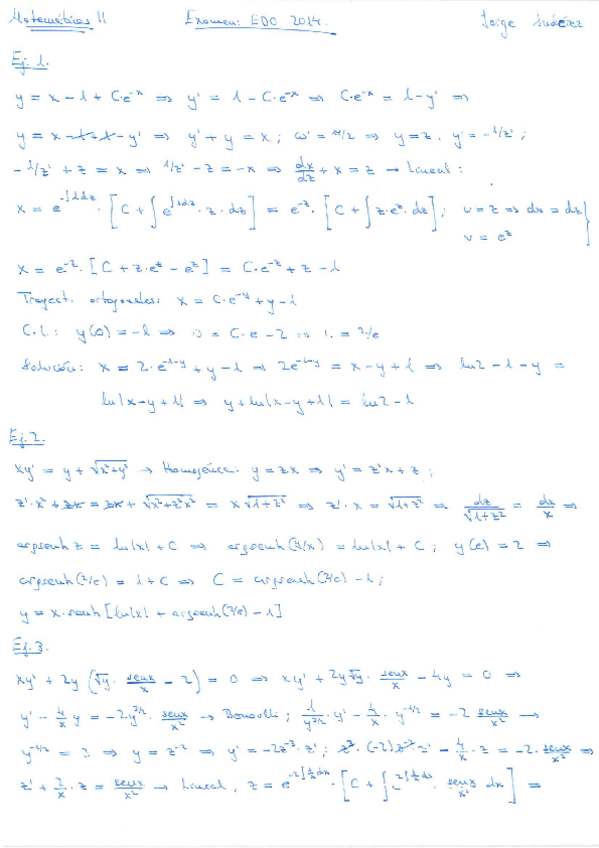 Matemáticas II Examen: EDO 2014. Jorge
Ej. 1.
y = x - 1 + C·e^-x ⇒ y' = 1 - C·e^-x ⇒ C·e^-x = 1 - y' ⇒
y = x - 1 + 1 - y' ⇒ y' + y = x ; ω' = π/2 ⇒ y = z, y' = -1/z' ;
-1/z' + z = x ⇒ 1/z' - z = -x ⇒ dx/dz + x = z → Lineal :
x = e^-∫1dz · [C + ∫e^∫1dz · z · dz] = e^-z · [C + ∫z·e^z dz] ; u = z ⇒ du = dz
v = e^z }
x = e^-z · [C + z·e^z - e^z] = C·e^-z + z - 1
Trayect. ortogonales: x = C·e^-y + y - 1
C.I.: y(0) = -1 ⇒ 0 = C·e - 2 ⇒ C = 2/e
Solución: x = 2·e^-1-y + y - 1 ⇒ 2e^-1-y = x - y + 1 ⇒ ln2 - 1 - y =
ln|x - y + 1| ⇒ y + ln|x - y + 1| = ln2 - 1
Ej. 2.
xy' = y + √x²+y² → Homogénea: y = zx ⇒ y' = z'x + z ;
z'·x² + zx = zx + √x²+z²x² = x√1+z² ⇒ z'·x = √1+z² ⇒ dz/√1+z² = dx/x ⇒
argsenh z = ln|x| + C ⇒ argsenh(y/x) = ln|x| + C ; y(e) = 2 ⇒
argsenh(2/e) = 1 + C ⇒ C = argsenh(2/e) - 1 ;
y = x·senh[ln|x| + argsenh(2/e) - 1]
Ej. 3.
xy' + 2y(√y · senx/x - 2) = 0 ⇒ xy' + 2y√y · senx/x - 4y = 0 ⇒
y' - 4/x y = -2y^3/2 · senx/x² → Bernoulli ; 1/y^3/2 · y' - 4/x · y^-1/2 = -2 senx/x² →
y^-1/2 = z ⇒ y = z^-2 ⇒ y' = -2z^-3 · z' ; z³·(-2)z^-3 z' - 4/x · z = -2 · senx/x² ⇒
z' + 2/x · z = senx/x² → Lineal, z = e^-2∫1/x dx · [C + ∫e^2∫1/x dx · senx/x² dx] =